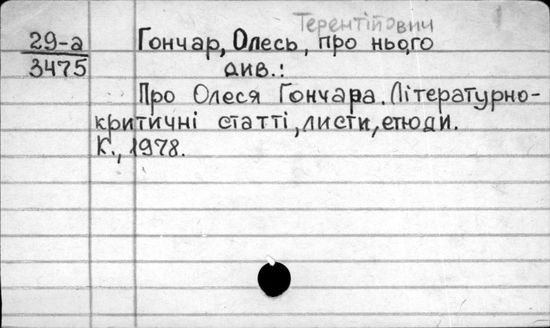 Терентійович
29-а Гончар, Олесь, про нього
3475 див.:
Про Олеся Гончара. Літературно-
критичні статті, листи, етюди.
К., 1978.